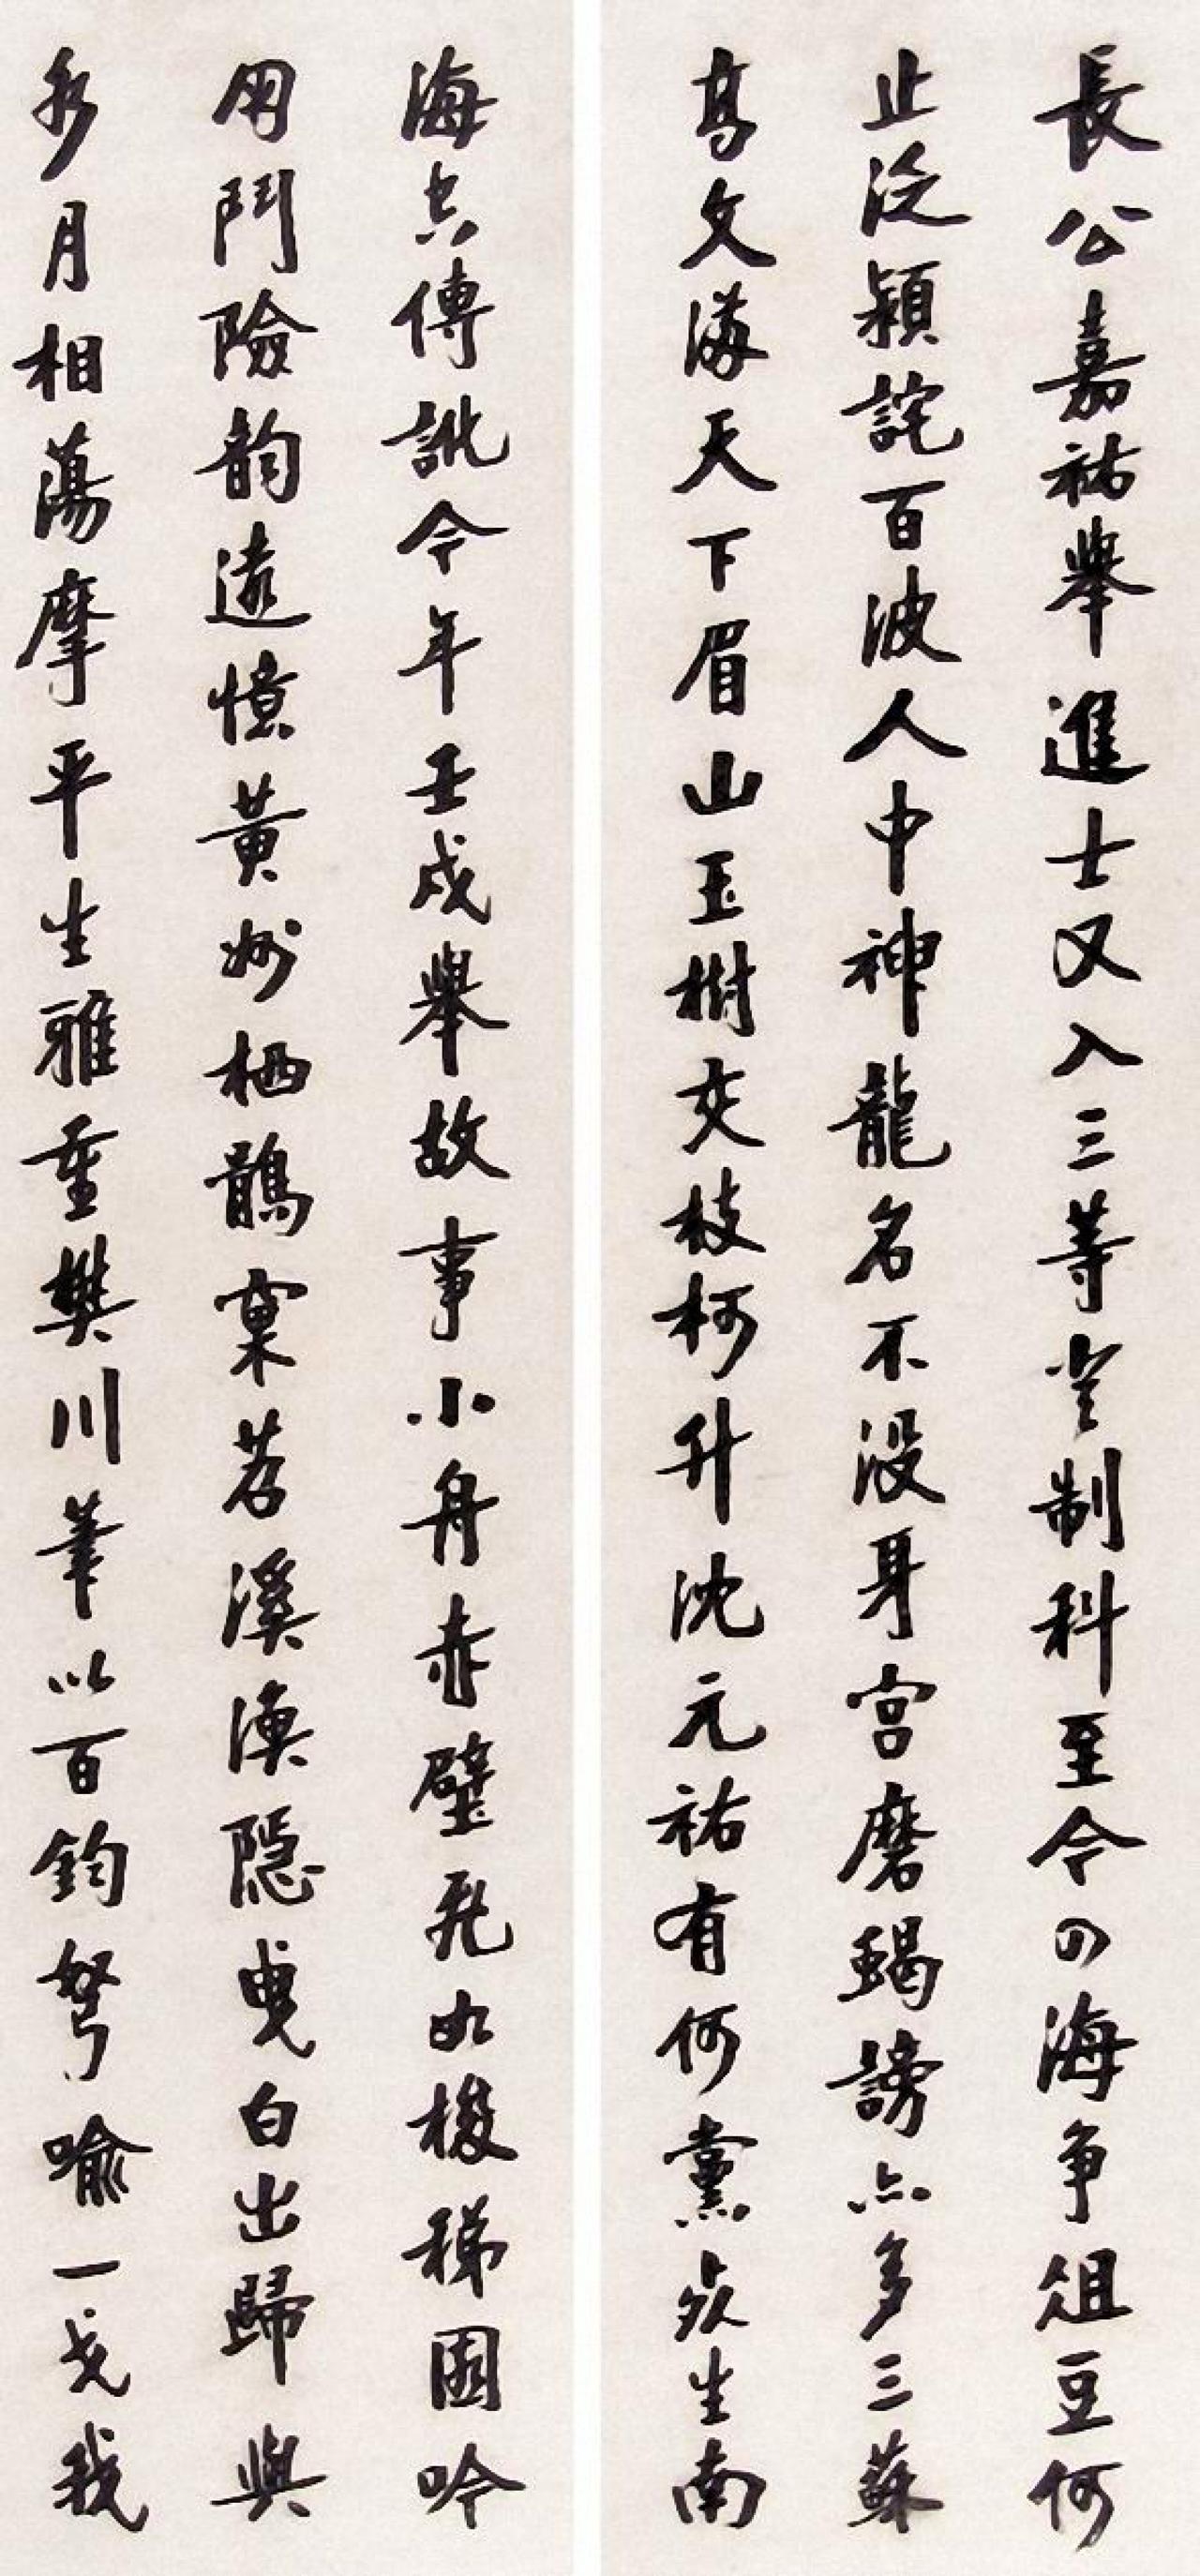 長公嘉祐舉進士又入三等登制科至今四海爭俎豆何
止泛潁詫百波人中神龍名不沒身宮磨蝎謗亦多三蘇
高文滿天下眉山玉樹交枝柯升沈元祐有何黨必生南
海亦傳訛今年壬戌舉故事小舟赤壁飛如梭稊園吟
罔鬥險韵遠憶黃州栖鶻窠苕溪漁隱曳白出歸與
水月相蕩摩平生雅重樊川筆以百鈞弩喻一戈我